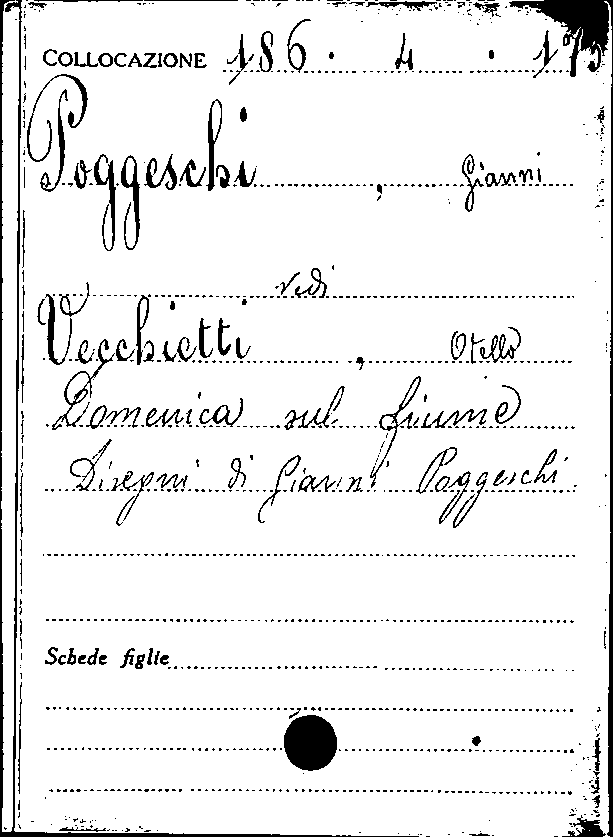 COLLOCAZIONE 186 · 4 · 173
Poggeschi , Gianni
vedi
Vecchietti , Otello
Domenica sul fiume
Disegni di Gianni Poggeschi.
Schede figlie